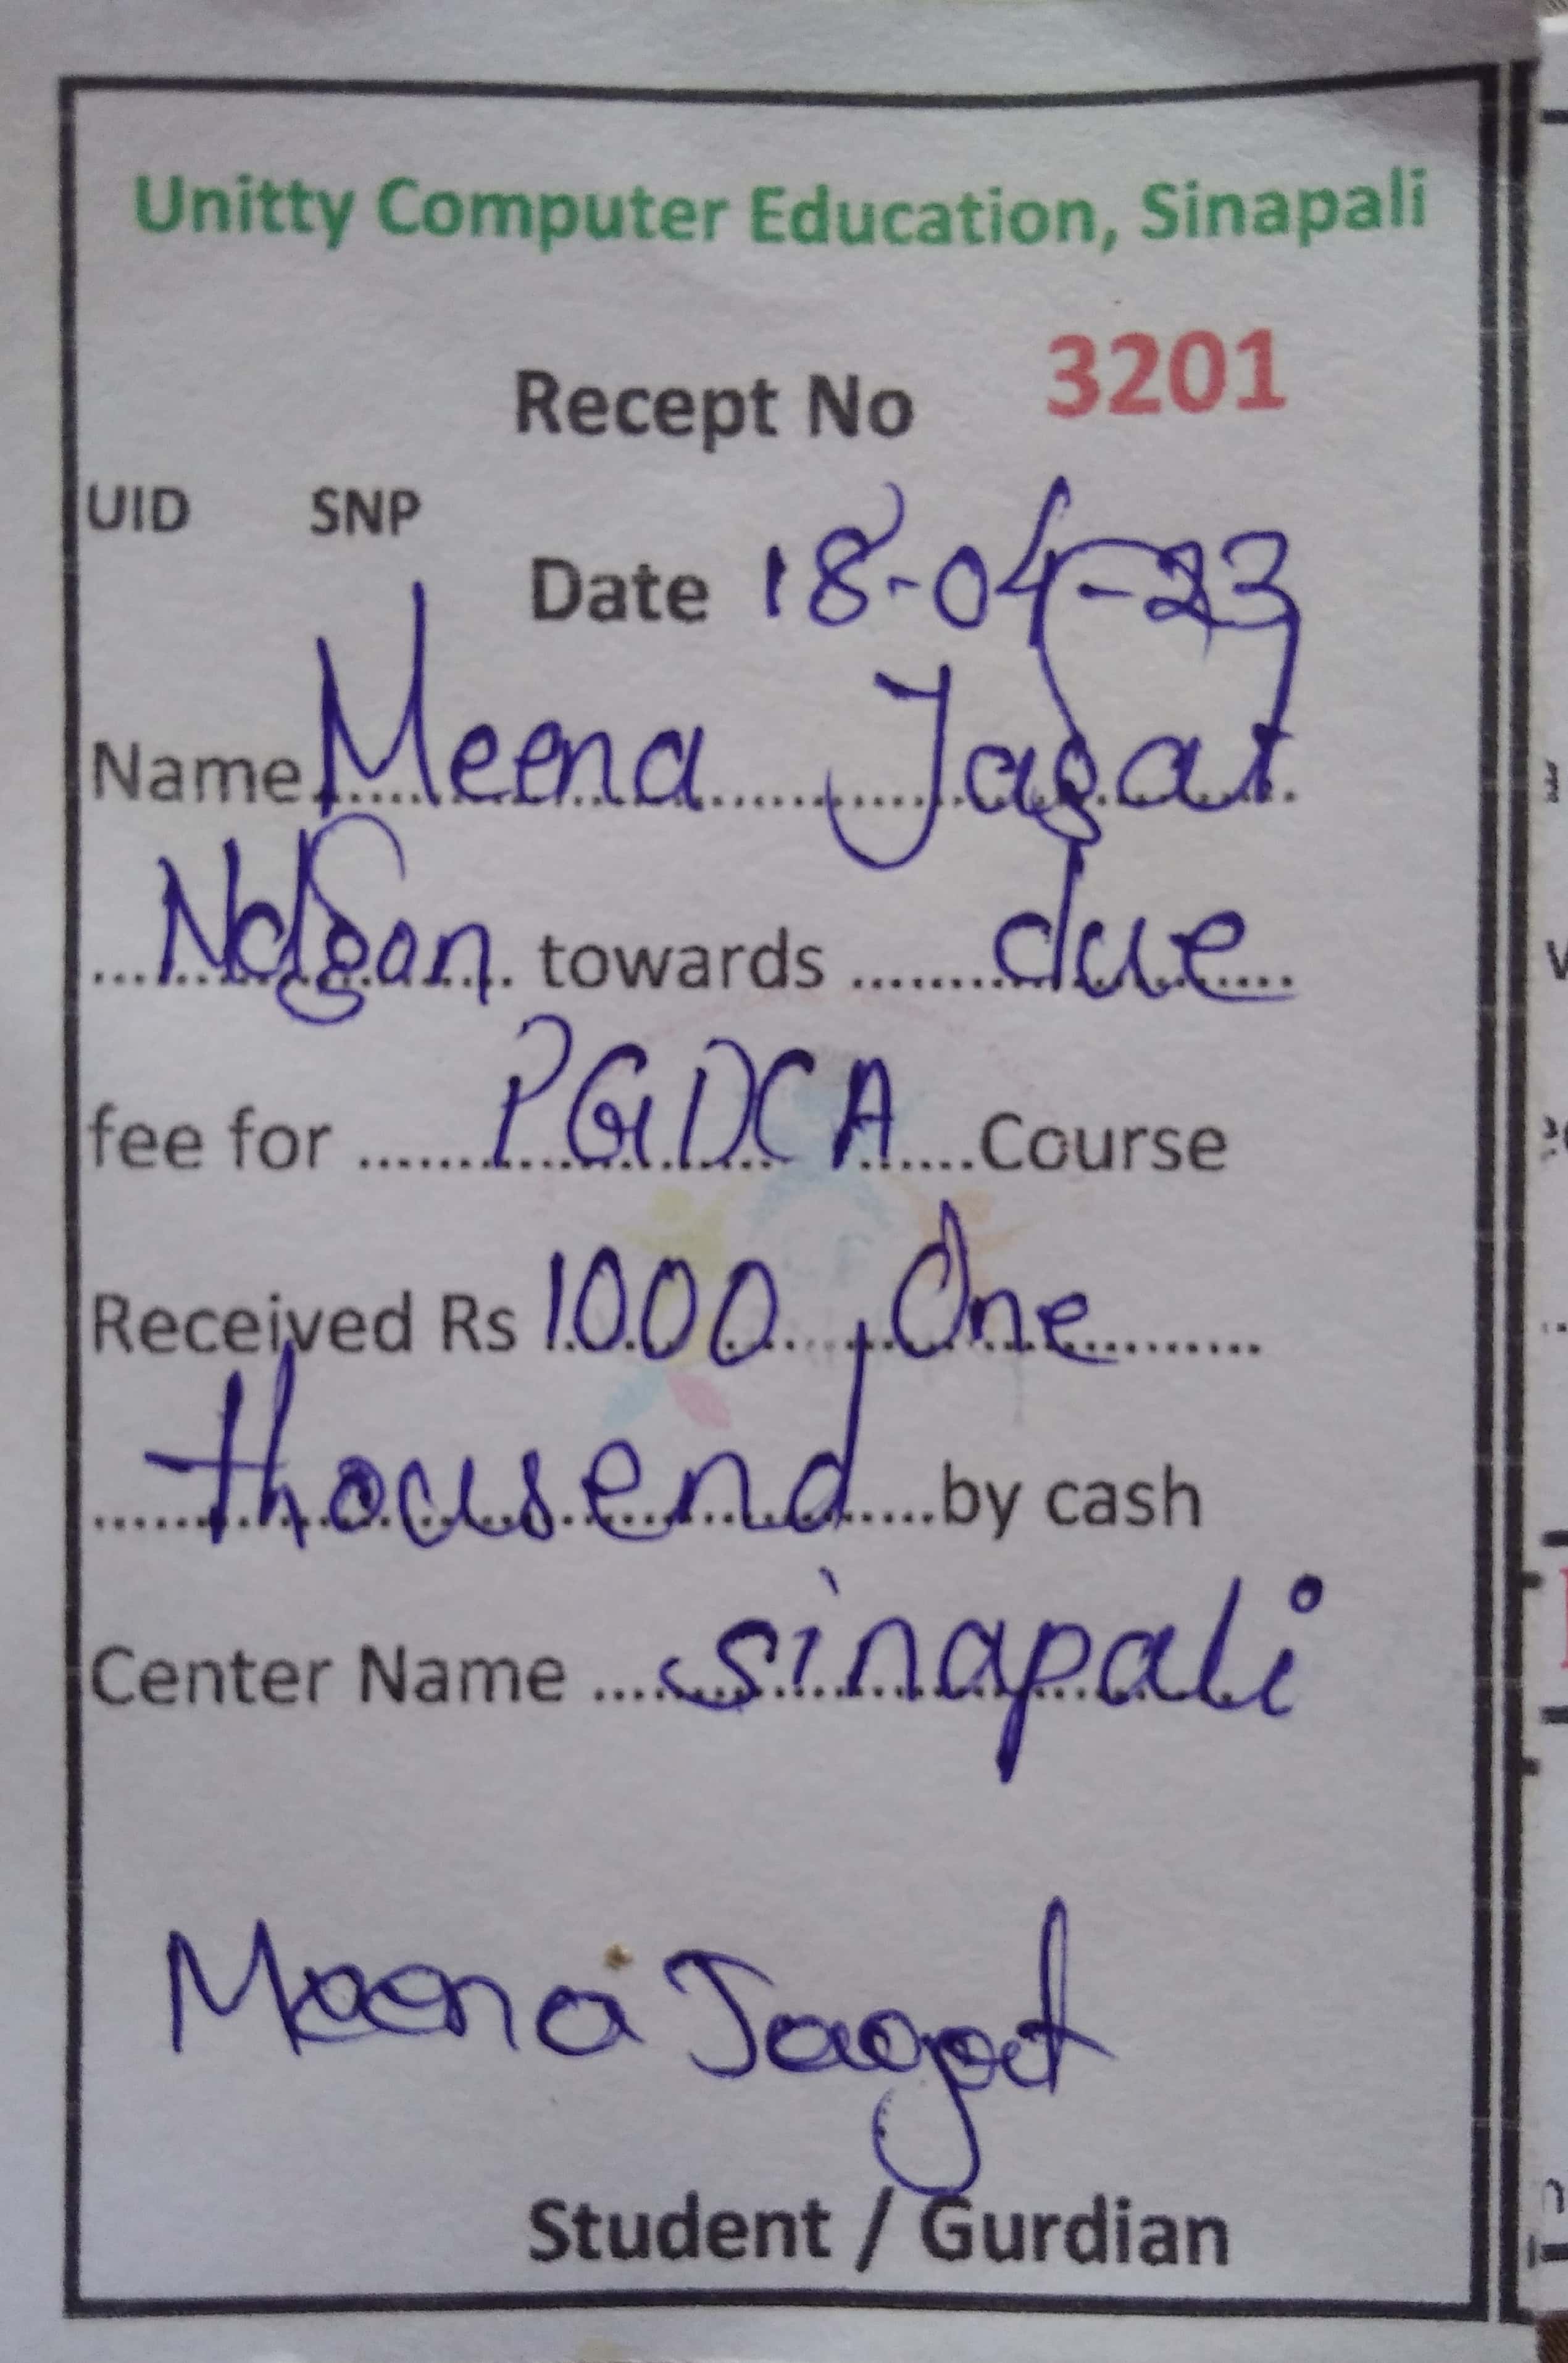 Unitty Computer Education, Sinapali
Recept No 3201
UID SNP
Date 18-04-23
Name Meena Jagat
towards due
fee for PGDCA Course
Received Rs 1000, One
thousend by cash
Center Name sinapali
Meena Jagat
Student / Gurdian